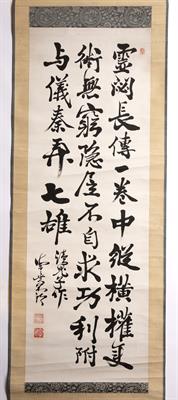 靈閟長傳一卷中縱橫權變
術無窮隱居不自求功利附
与儀秦弄七雄